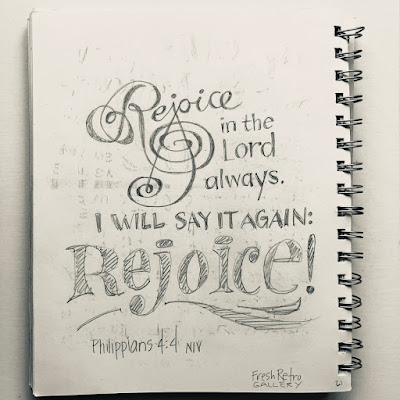 Rejoice
in the
Lord
always.
I WILL SAY IT AGAIN:
Rejoice!
Philippians 4:4 NIV
Fresh Retro
GALLERY